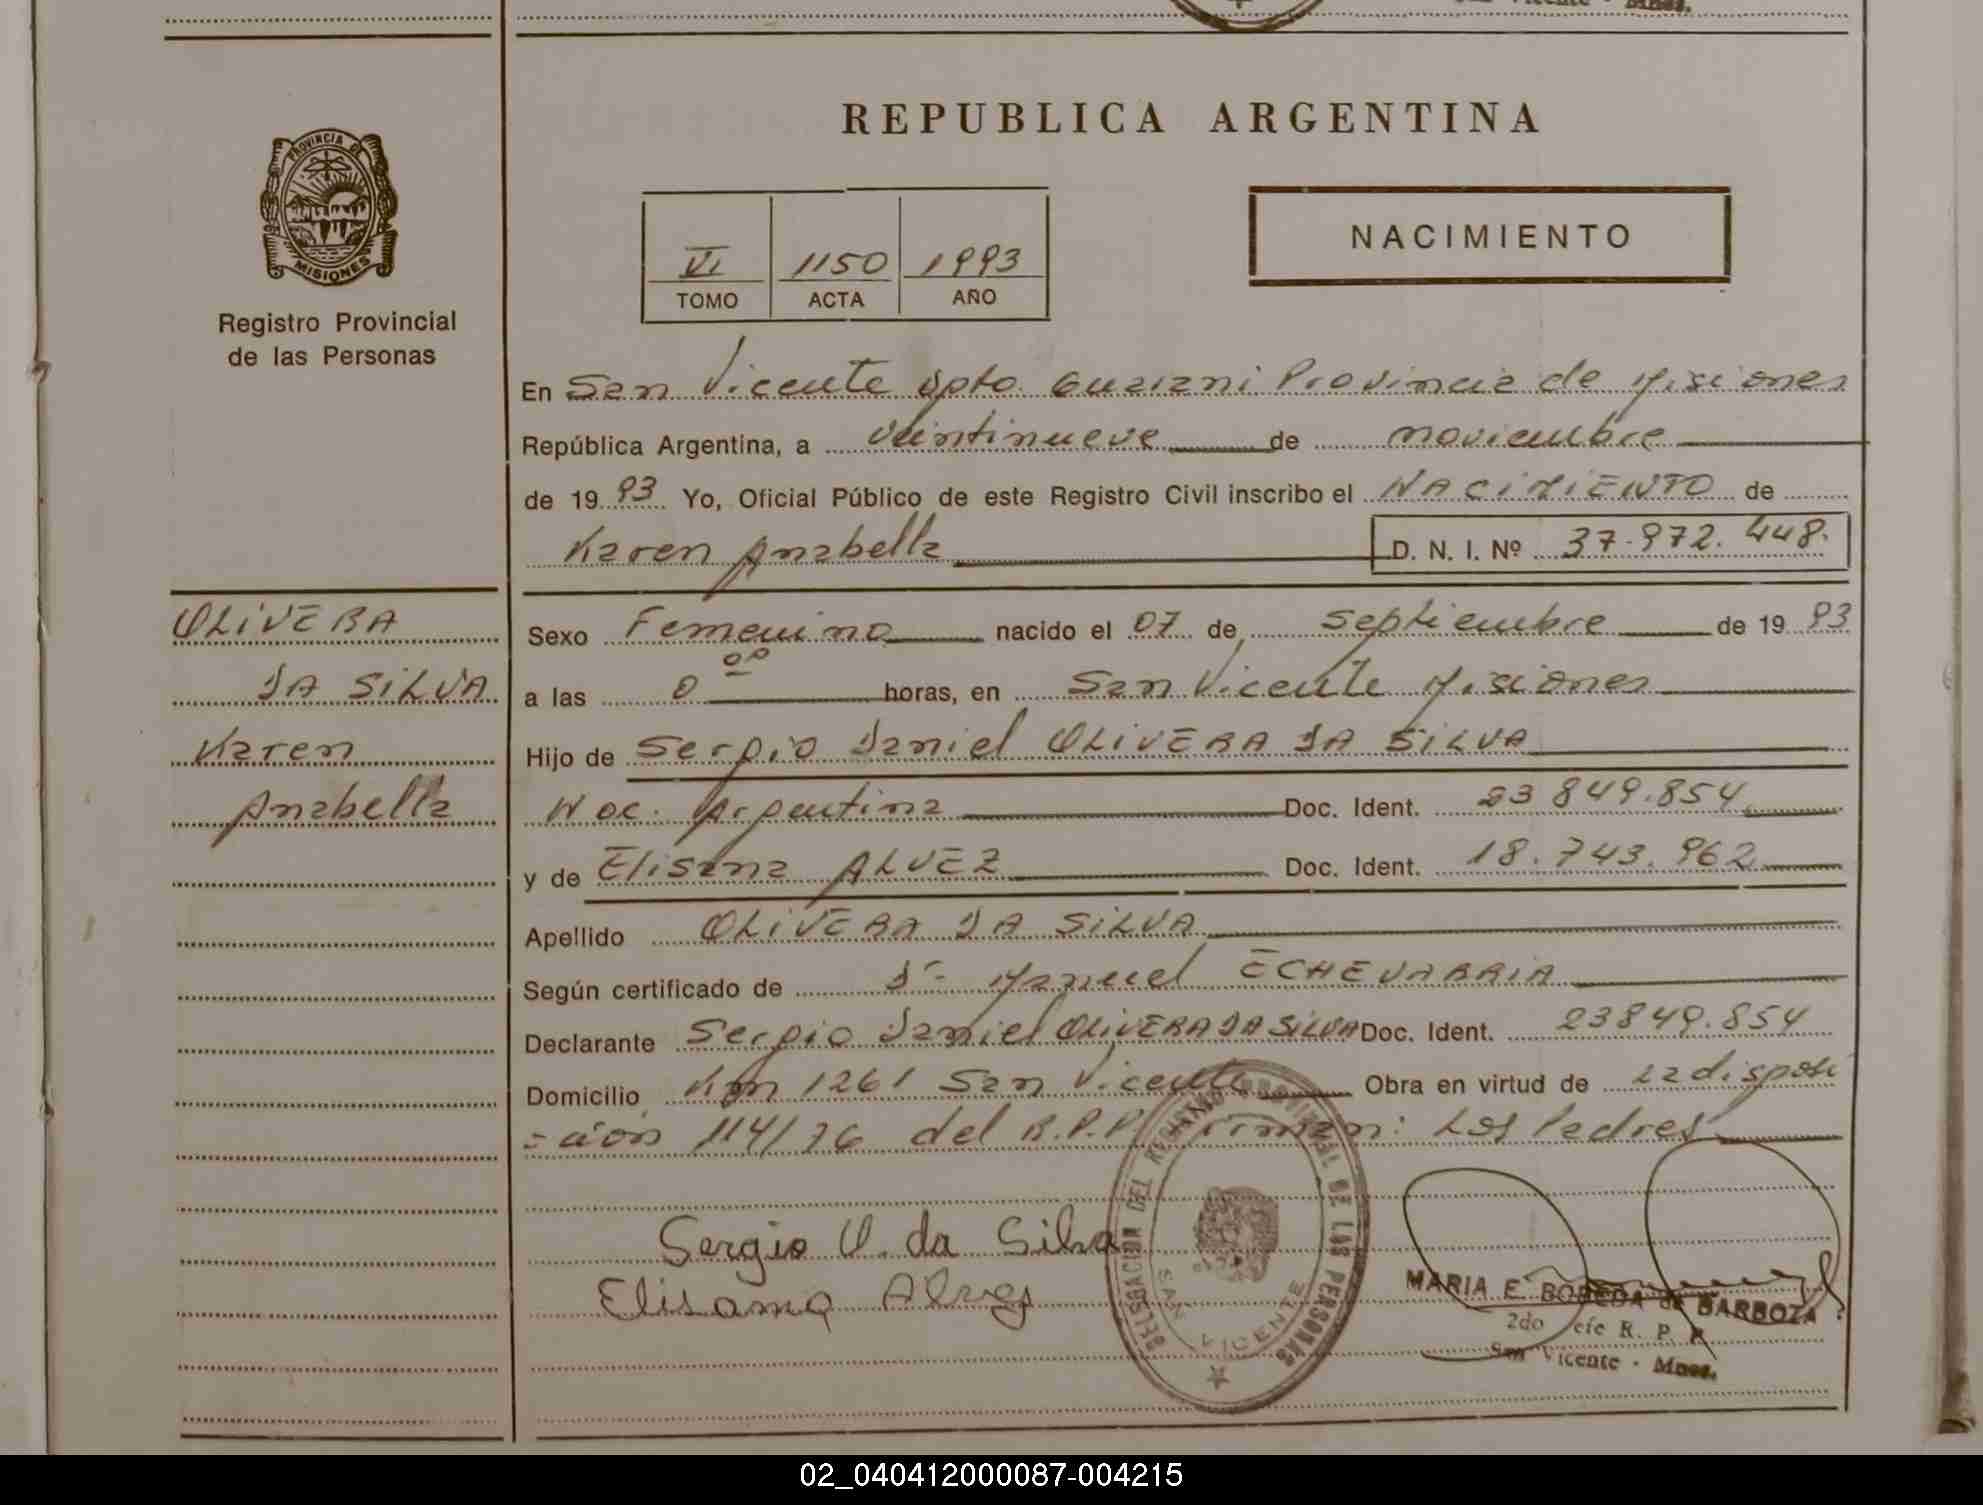 San Vicente - Mnes.
REPUBLICA ARGENTINA
PROVINCIA DE
MISIONES
Registro Provincial
de las Personas
NACIMIENTO
VI 1150 1993
TOMO ACTA AÑO
En San Vicente Dpto. Guarani Provincia de Misiones
República Argentina, a veintinueve de noviembre
de 1993 Yo, Oficial Público de este Registro Civil inscribo el NACIMIENTO de
Karen Anabella D. N. I. Nº 37.972.448.
OLIVERA
DA SILVA
Karen
Anabella
Sexo Femenino nacido el 07 de Septiembre de 1993
a las 0 00 horas, en San Vicente Misiones
Hijo de Sergio Daniel OLIVERA DA SILVA
Nac. Argentina Doc. Ident. 23 849.854
y de Elisana ALVEZ Doc. Ident. 18.743.962
Apellido OLIVERA DA SILVA
Según certificado de Dr. Manuel ECHEVARRIA
Declarante Sergio Daniel OLIVERA DA SILVA Doc. Ident. 23849.854
Domicilio Km 1261 San Vicente Obra en virtud de la disposi
=ción 114/76 del R.P.P. Firman: Los Padres
Sergio O. da Silva
Elisama Alves
DELEGACION DEL REGISTRO PROVINCIAL DE LAS PERSONAS
SAN VICENTE
MARIA E. BOBEDA de BARBOZA
2do Jefe R. P. P.
San Vicente - Mnes.
02_040412000087-004215